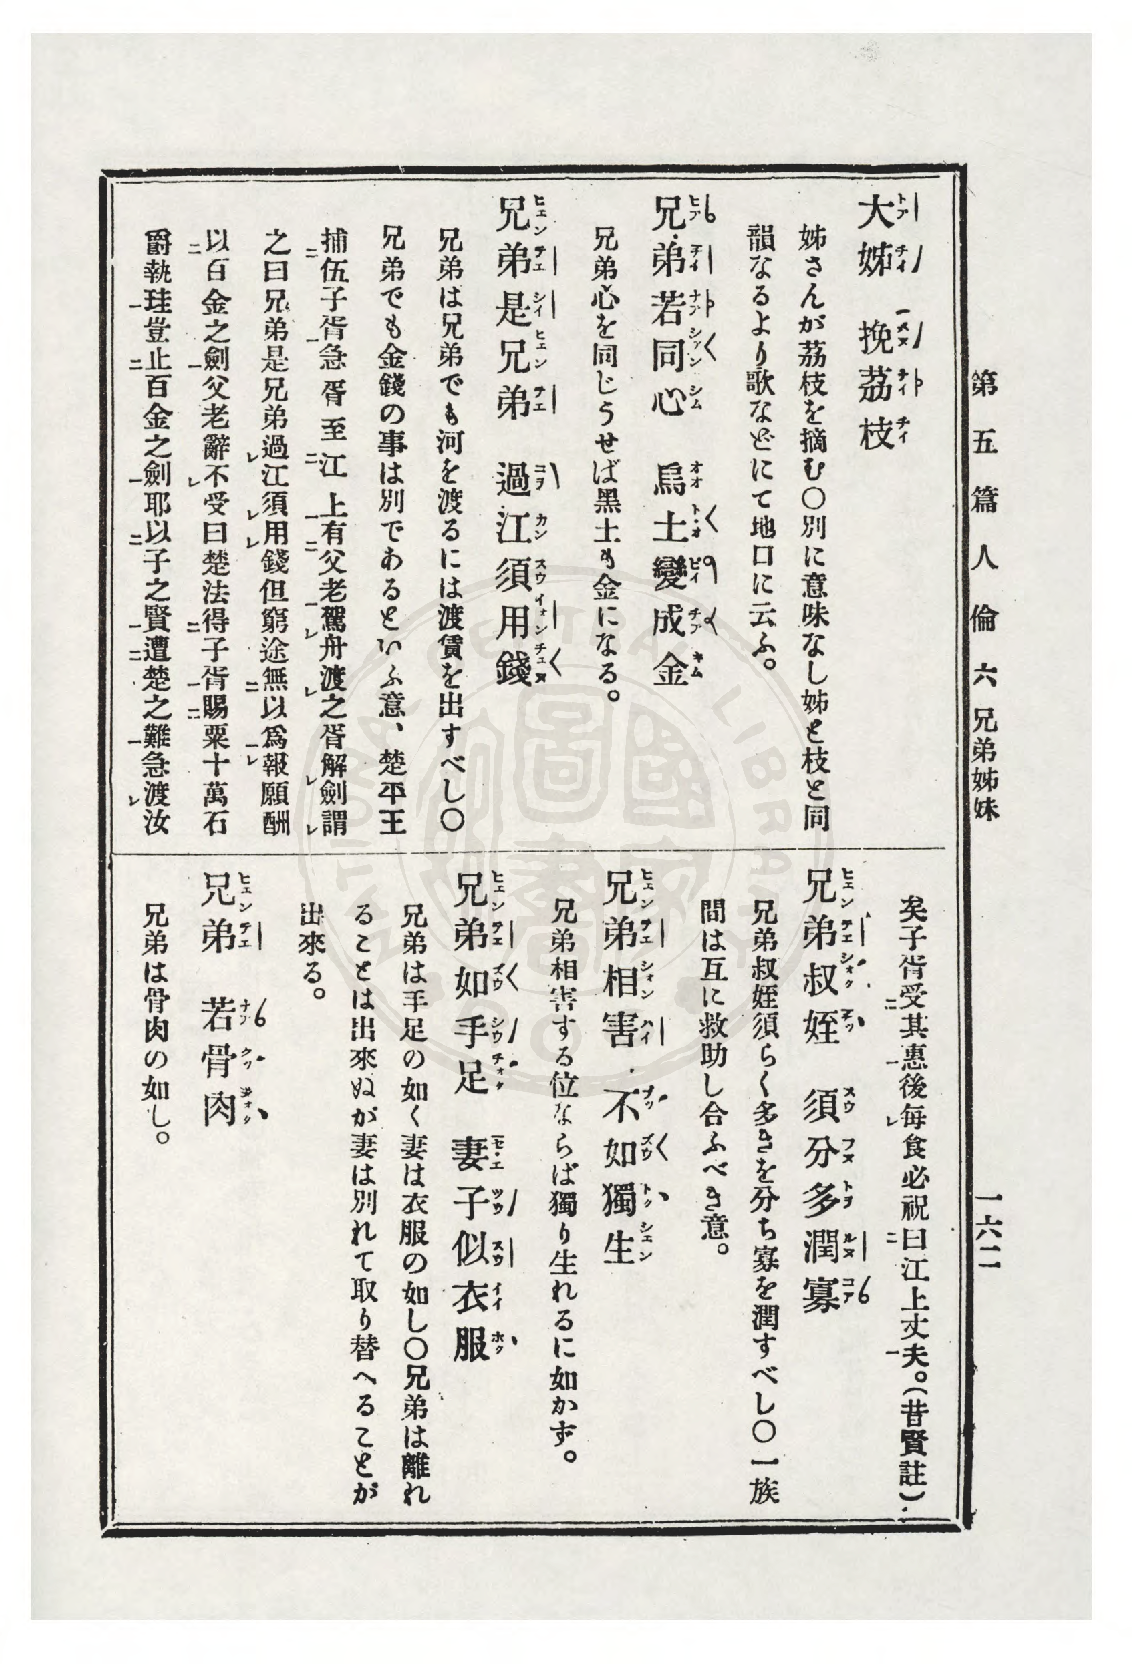 第五篇 人倫 六 兄弟姊妹
一六二
大姊 挽荔枝
姊さんが荔枝を摘む〇別に意味なし姊と枝と同
韻なるより歌などにて地口に云ふ。
兄弟若同心 烏土變成金
兄弟心を同じうせば黑土も金になる。
兄弟是兄弟 過江須用錢
兄弟は兄弟でも河を渡るには渡賃を出すべし〇
兄弟でも金錢の事は別であるといふ意、楚平王
捕伍子胥急胥至江上有父老駕舟渡之胥解劍謂
之曰兄弟是兄弟過江須用錢但窮途無以爲報願酬
以百金之劍父老辭不受曰楚法得子胥賜粟十萬石
爵執珪豈止百金之劍耶以子之賢遭楚之難急渡汝
矣子胥受其惠後每食必祝曰江上丈夫。(昔賢註)
兄弟叔姪 須分多潤寡
兄弟叔姪須らく多きを分ち寡を潤すべし〇一族
間は互に救助し合ふべき意。
兄弟相害 不如獨生
兄弟相害する位ならば獨り生れるに如かず。
兄弟如手足 妻子似衣服
兄弟は手足の如く妻は衣服の如し〇兄弟は離れ
ることは出來ぬが妻は別れて取り替へることが
出來る。
兄弟 若骨肉
兄弟は骨肉の如し。